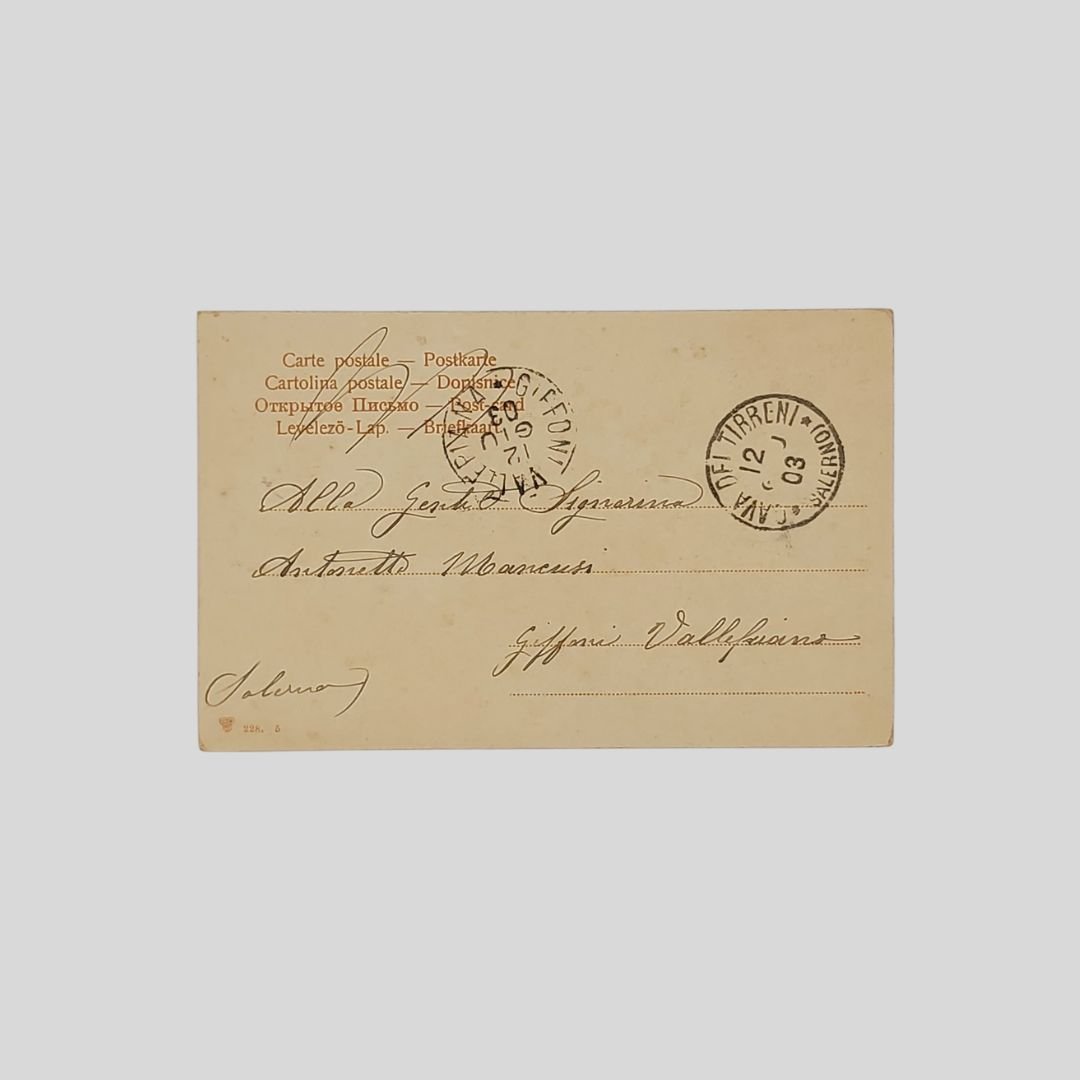 Carte postale — Postkarte
Cartolina postale — Dopisnice
Открытое Письмо — Post-card
Levelezö-Lap. — Briefkaart.
GIFFONI VALLE PIANA
12 GIU 03
CAVA DEI TIRRENI * (SALERNO) *
12 03
Alla Gentile Signorina
Antonetta Mancusi
Giffoni Vallepiana
Salerno)
228. 5